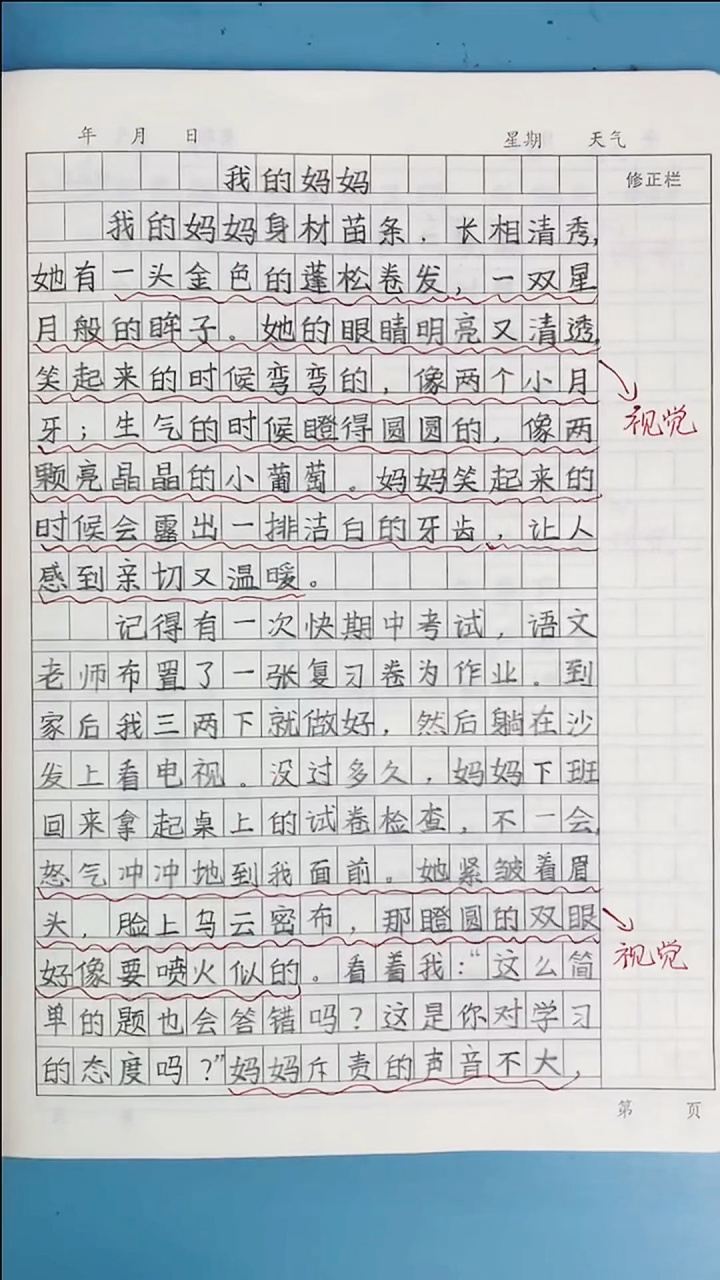 年 月 日 星期 天气
我的妈妈 修正栏
我的妈妈身材苗条，长相清秀，
她有一头金色的蓬松卷发，一双星
月般的眸子。她的眼睛明亮又清透，
笑起来的时候弯弯的，像两个小月
牙；生气的时候瞪得圆圆的，像两
视觉
颗亮晶晶的小葡萄。妈妈笑起来的
时候会露出一排洁白的牙齿，让人
感到亲切又温暖。
记得有一次快期中考试，语文
老师布置了一张复习卷为作业。到
家后我三两下就做好，然后躺在沙
发上看电视。没过多久，妈妈下班
回来拿起桌上的试卷检查，不一会，
怒气冲冲地到我面前。她紧皱着眉
头，脸上乌云密布，那瞪圆的双眼
好像要喷火似的。看着我：“这么简
视觉
单的题也会答错吗？这是你对学习
的态度吗？”妈妈斥责的声音不大，
第 页